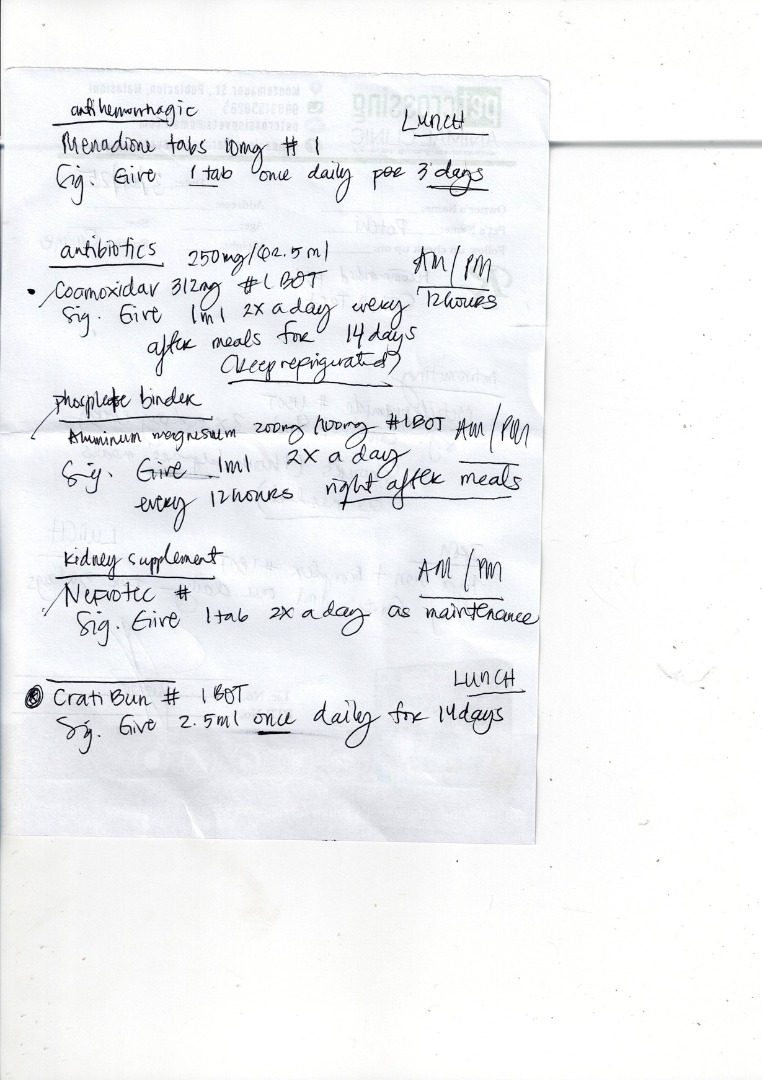 antihemorrhagic
LUNCH
Menadione tabs 10mg # 1
Sig. Give 1 tab once daily for 3 days
antibiotics 250mg/62.5ml
AM/PM
Coamoxidav 312mg #1 BOT
Sig. Give 1ml 2X a day every 12hours
after meals for 14days
(keep refrigirated)
phosphate binder
Aluminum magnesium 200mg/100mg #1BOT AM/PM
Sig. Give 1ml 2X a day
every 12hours right after meals
kidney supplement
AM/PM
Nefrotec #
Sig. Give 1tab 2X a day as maintenance
LUNCH
CratiBun # 1BOT
Sig. Give 2.5ml once daily for 14days